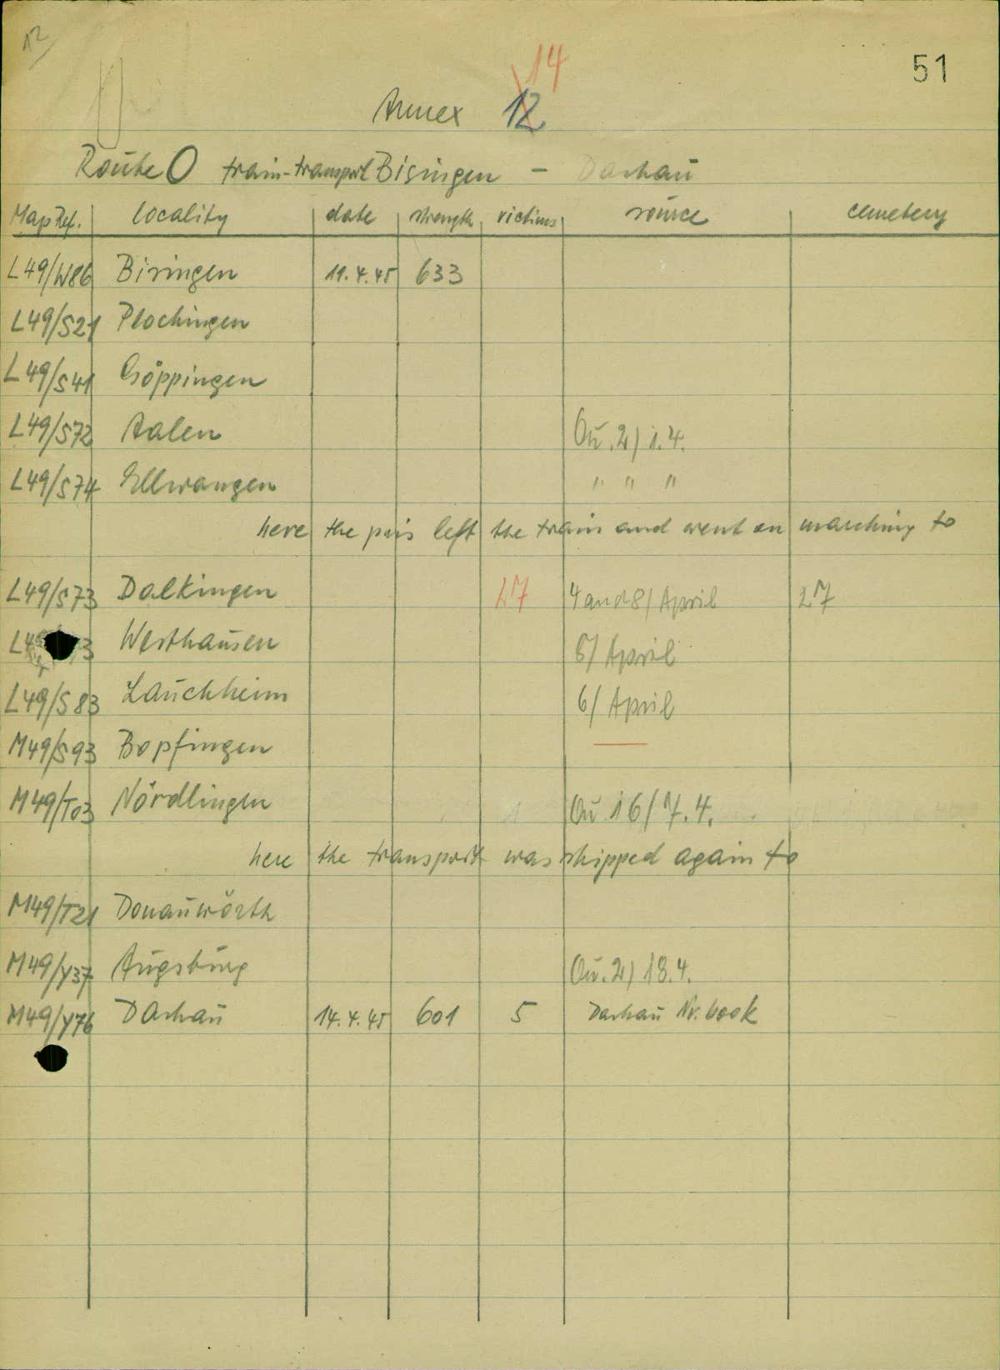 12
14
51
Annex 12
Route O train-transport Bisingen - Dachau
Map Ref. locality date strength victims source cemetery
L49/W86 Bisingen 11.4.45 633
L49/S21 Plochingen
L49/S41 Göppingen
L49/S72 Aalen Qu. 2/ 1.4.
L49/S74 Ellwangen " " "
here the pris left the train and went on marching to
L49/S73 Dalkingen 27 4 and 8/ April 27
L49 3 Westhausen 5/ April
L49/S83 Lauchheim 6/ April
M49/S93 Bopfingen
M49/T03 Nördlingen 1 Qu 16/7.4.
here the transport was shipped again to
M49/T21 Donauwörth
M49/Y37 Augsburg Qu. 2/ 13.4.
M49/Y76 Dachau 14.4.45 601 5 Dachau Nr. book